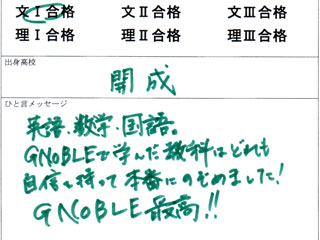 文Ⅰ合格 文Ⅱ合格 文Ⅲ合格
理Ⅰ合格 理Ⅱ合格 理Ⅲ合格
出身高校
開成
ひと言メッセージ
英語、数学、国語。
GNOBLEで学んだ教科はどれも
自信を持って本番にのぞめました!
GNOBLE最高!!